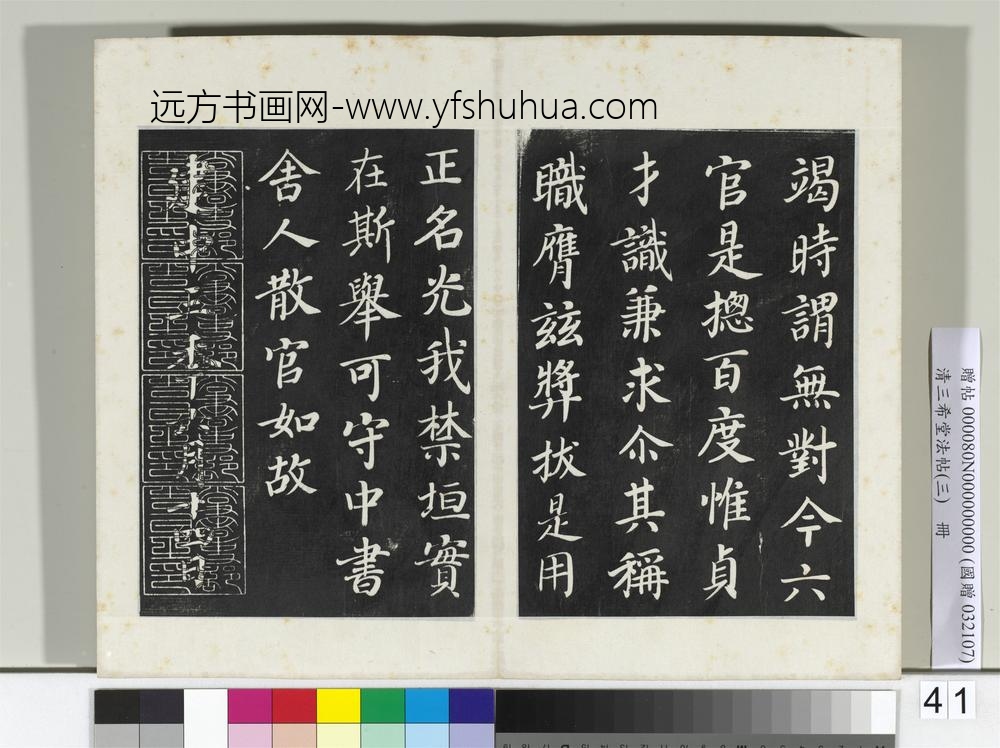 远方书画网-www.yfshuhua.com
竭時謂無對今六
官是摠百度惟貞
才識兼求尒其稱
職膺兹獎拔是用
正名光我禁垣實
在斯舉可守中書
舍人散官如故
建中元年八月廿四日
贈帖 000080N000000000 (國贈 032107)
清三希堂法帖(三) 冊
41